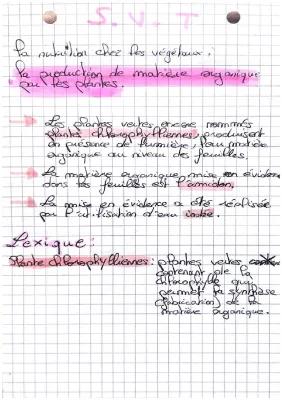 S.V.T
La nutrition chez les végétaux.
La production de matière organique
par les plantes.
Les plantes vertes encore nommés
plantes chlorophylliennes, produisent
en présence de lumière, leur matière
organique au niveau des feuilles.
La matière organique mise en évidence
dans les feuilles est l'amidon.
La mise en évidence a été réalisée
par l'utilisation d'eau iodée.
Lexique:
Plante chlorophylliennes: plantes vertes
contenant de la
chlorophylle qui
permet la synthèse
(fabrication) de la
matière organique.